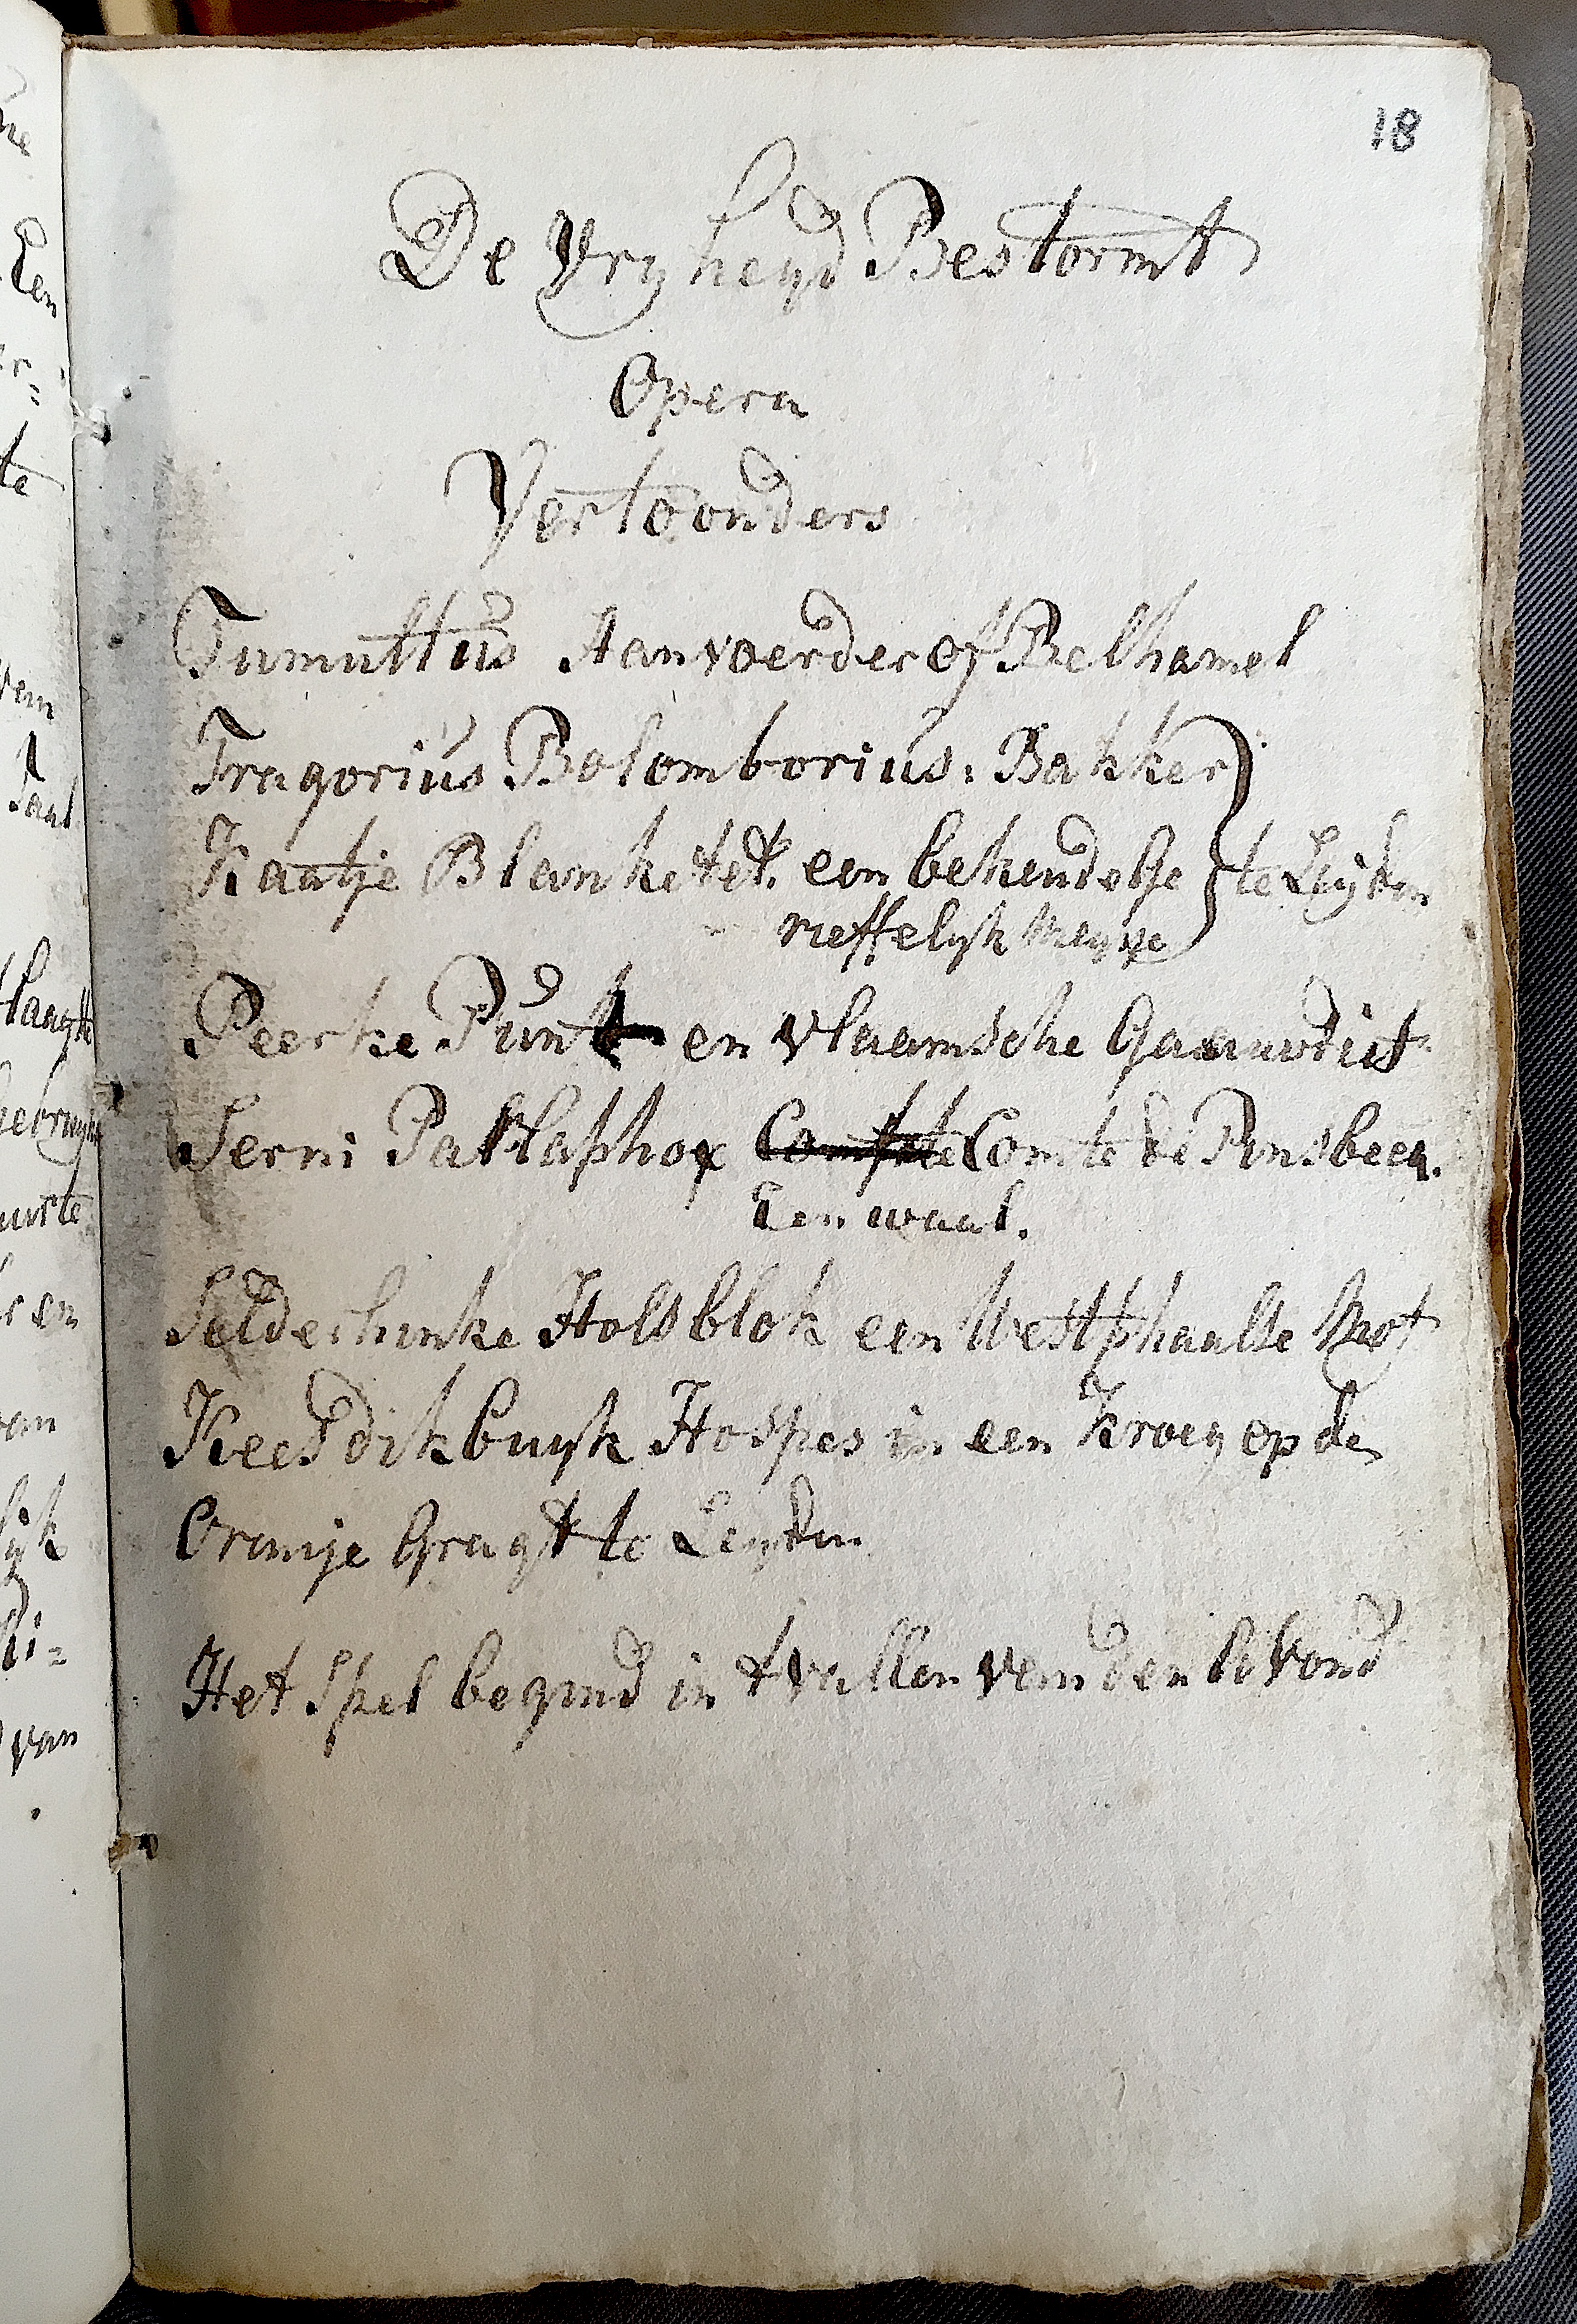 18
De Vryheyd Bestormt
Opera
Vertoonders
Tumultus Aanvoerder of Belhamel
Fragorius Bolomborius: Bakker
Kaatje Blanketet. een bekendelje te Leyden
neffelyk Meysje
Peerke Punt en vlaamsche Gaauwdiet
Jerni Patlaphox Comte de Punsbeeq.
Een waal.
Holsblok een Westphaalse Mof
Kees dikbuyk Hospes in een Kroeg op de
Oranje Gragt te Leyden
Het Spel begind in t vallen van den Avond